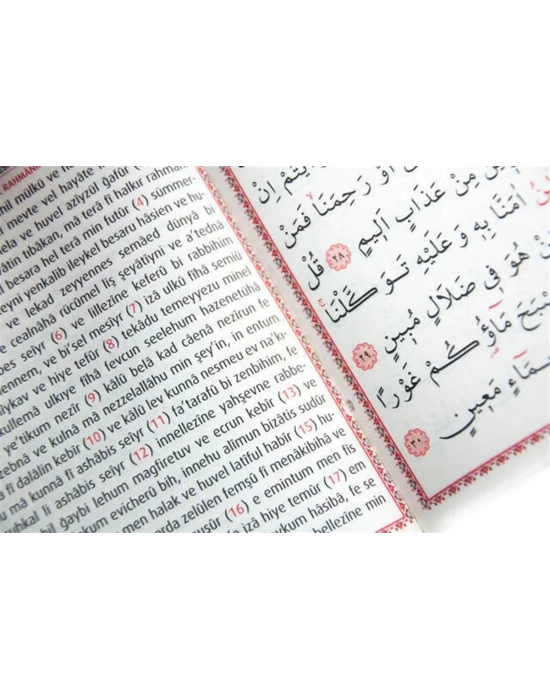 RAHMANI
mil mülkü ve h
meyte vel hayate
ela ve huvel azîyzül ğafûr (2)
tın tıbâkan, mâ terâ fî halkır rahmân
besara hel terâ min futûr (4) sümmer-
teyni yenkalib ileykel besaru hâsien ve hu-
ve lekad zeyyennes semâed dünyâ bi
ve cealnâhâ rücûmel liş şeyâtîyni ve a'tednâ
bes seîyr (6) ve lillezîne keferû bi rabbihim
ennem, ve bi'sel mesîyr (7) izâ ulkû fîhâ semiû
hîykav ve hiye tefûr (8) tekâdu temeyyezu minel
küllemâ ulkıye fîhâ fevcun seelehum hazenetühâ
e'tikum nezîr (9) kâlû belâ kad câenâ nezîrun fe
zebnâ ve kulnâ mâ nezzelallâhu min şey'in, in entum
fî dalâlin kebîr (10) ve kâlû lev kunnâ nesmeu ev na'k-
mâ kunnâ fî ashâbis seîyr (11) fa'tarafû bi zenbihim, fe
uhkal li ashâbis seîyr (12) innellezîne yahşevne rabbe-
bil ğaybi lehum mağfiretuv ve ecrun kebîr (13) ve
kum evicherû bih, innehu alîmun bizâtis sudûr
men halak ve huvel latîful habîr (15) hu-
arda zelûlen femşû fî menâkibihâ ve
nuşûr (16) e emintum men fis
izâ hiye temûr (17) em
aykum hâsibâ, fe se
bellezîne min
اَوْ رَحِمَنَاۙ فَمَنْ
مِنْ عَذَابٍ اَلٖيمٍ ﴿٢٨﴾ قُلْ
اٰمَنَّا بِهٖ وَعَلَيْهِ تَوَكَّلْنَاۚ
هُوَ فٖي ضَلَالٍ مُبٖينٍ ﴿٢٩﴾
مَٓاؤُكُمْ غَوْرًا
مَعٖينٍ ﴿٣٠﴾